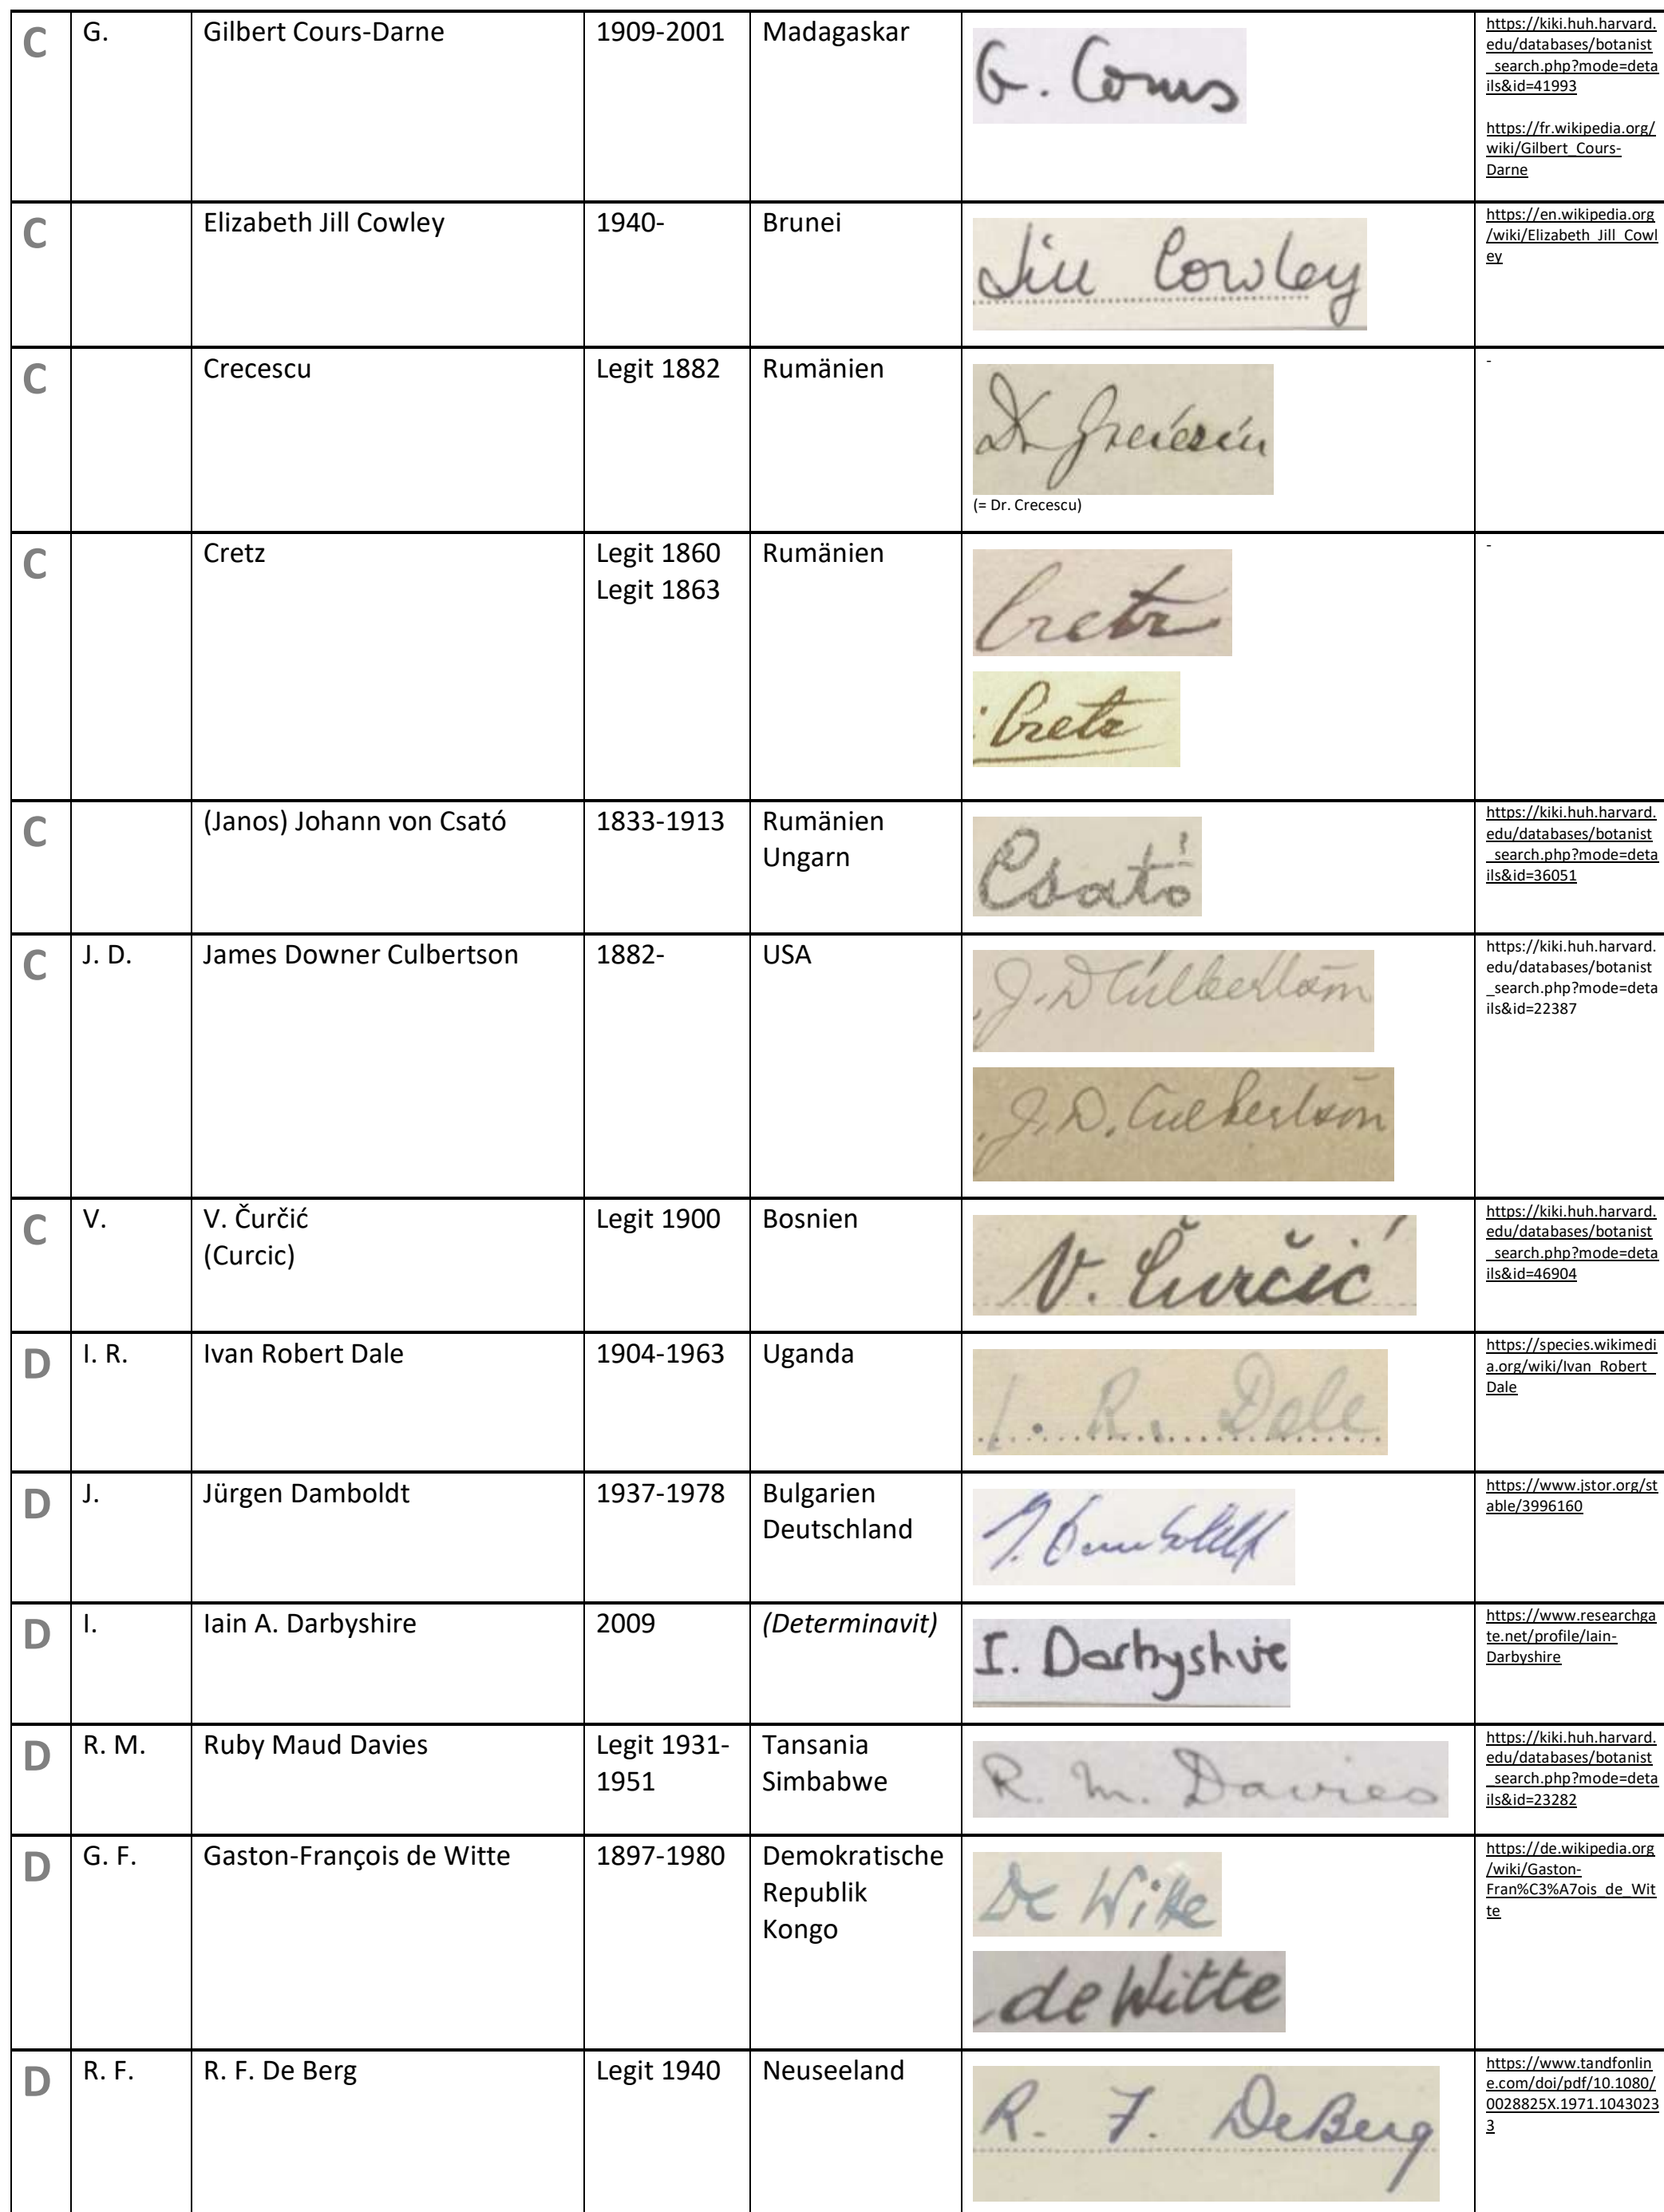 C G. Gilbert Cours-Darne 1909-2001 Madagaskar G. Cours https://kiki.huh.harvard.
edu/databases/botanist
_search.php?mode=deta
ils&id=41993
https://fr.wikipedia.org/
wiki/Gilbert_Cours-
Darne
C Elizabeth Jill Cowley 1940- Brunei Jill Cowley https://en.wikipedia.org
/wiki/Elizabeth_Jill_Cowl
ey
C Crecescu Legit 1882 Rumänien Dr. Grecescu -
(= Dr. Crecescu)
C Cretz Legit 1860 Rumänien Cretz -
Legit 1863
Cretz
C (Janos) Johann von Csató 1833-1913 Rumänien Csató https://kiki.huh.harvard.
Ungarn edu/databases/botanist
_search.php?mode=deta
ils&id=36051
C J. D. James Downer Culbertson 1882- USA J. D Culbertson https://kiki.huh.harvard.
edu/databases/botanist
_search.php?mode=deta
ils&id=22387
J. D. Culbertson
C V. V. Čurčić Legit 1900 Bosnien V. Čurčić https://kiki.huh.harvard.
(Curcic) edu/databases/botanist
_search.php?mode=deta
ils&id=46904
D I. R. Ivan Robert Dale 1904-1963 Uganda I. R. Dale https://species.wikimedi
a.org/wiki/Ivan_Robert_
Dale
D J. Jürgen Damboldt 1937-1978 Bulgarien J. Damboldt https://www.jstor.org/st
Deutschland able/3996160
D I. Iain A. Darbyshire 2009 (Determinavit) I. Darbyshire https://www.researchga
te.net/profile/Iain-
Darbyshire
D R. M. Ruby Maud Davies Legit 1931- Tansania R. M. Davies https://kiki.huh.harvard.
1951 Simbabwe edu/databases/botanist
_search.php?mode=deta
ils&id=23282
D G. F. Gaston-François de Witte 1897-1980 Demokratische De Witte https://de.wikipedia.org
Republik /wiki/Gaston-
Kongo Fran%C3%A7ois_de_Wit
te
de Witte
D R. F. R. F. De Berg Legit 1940 Neuseeland R. F. DeBerg https://www.tandfonlin
e.com/doi/pdf/10.1080/
0028825X.1971.1043023
3